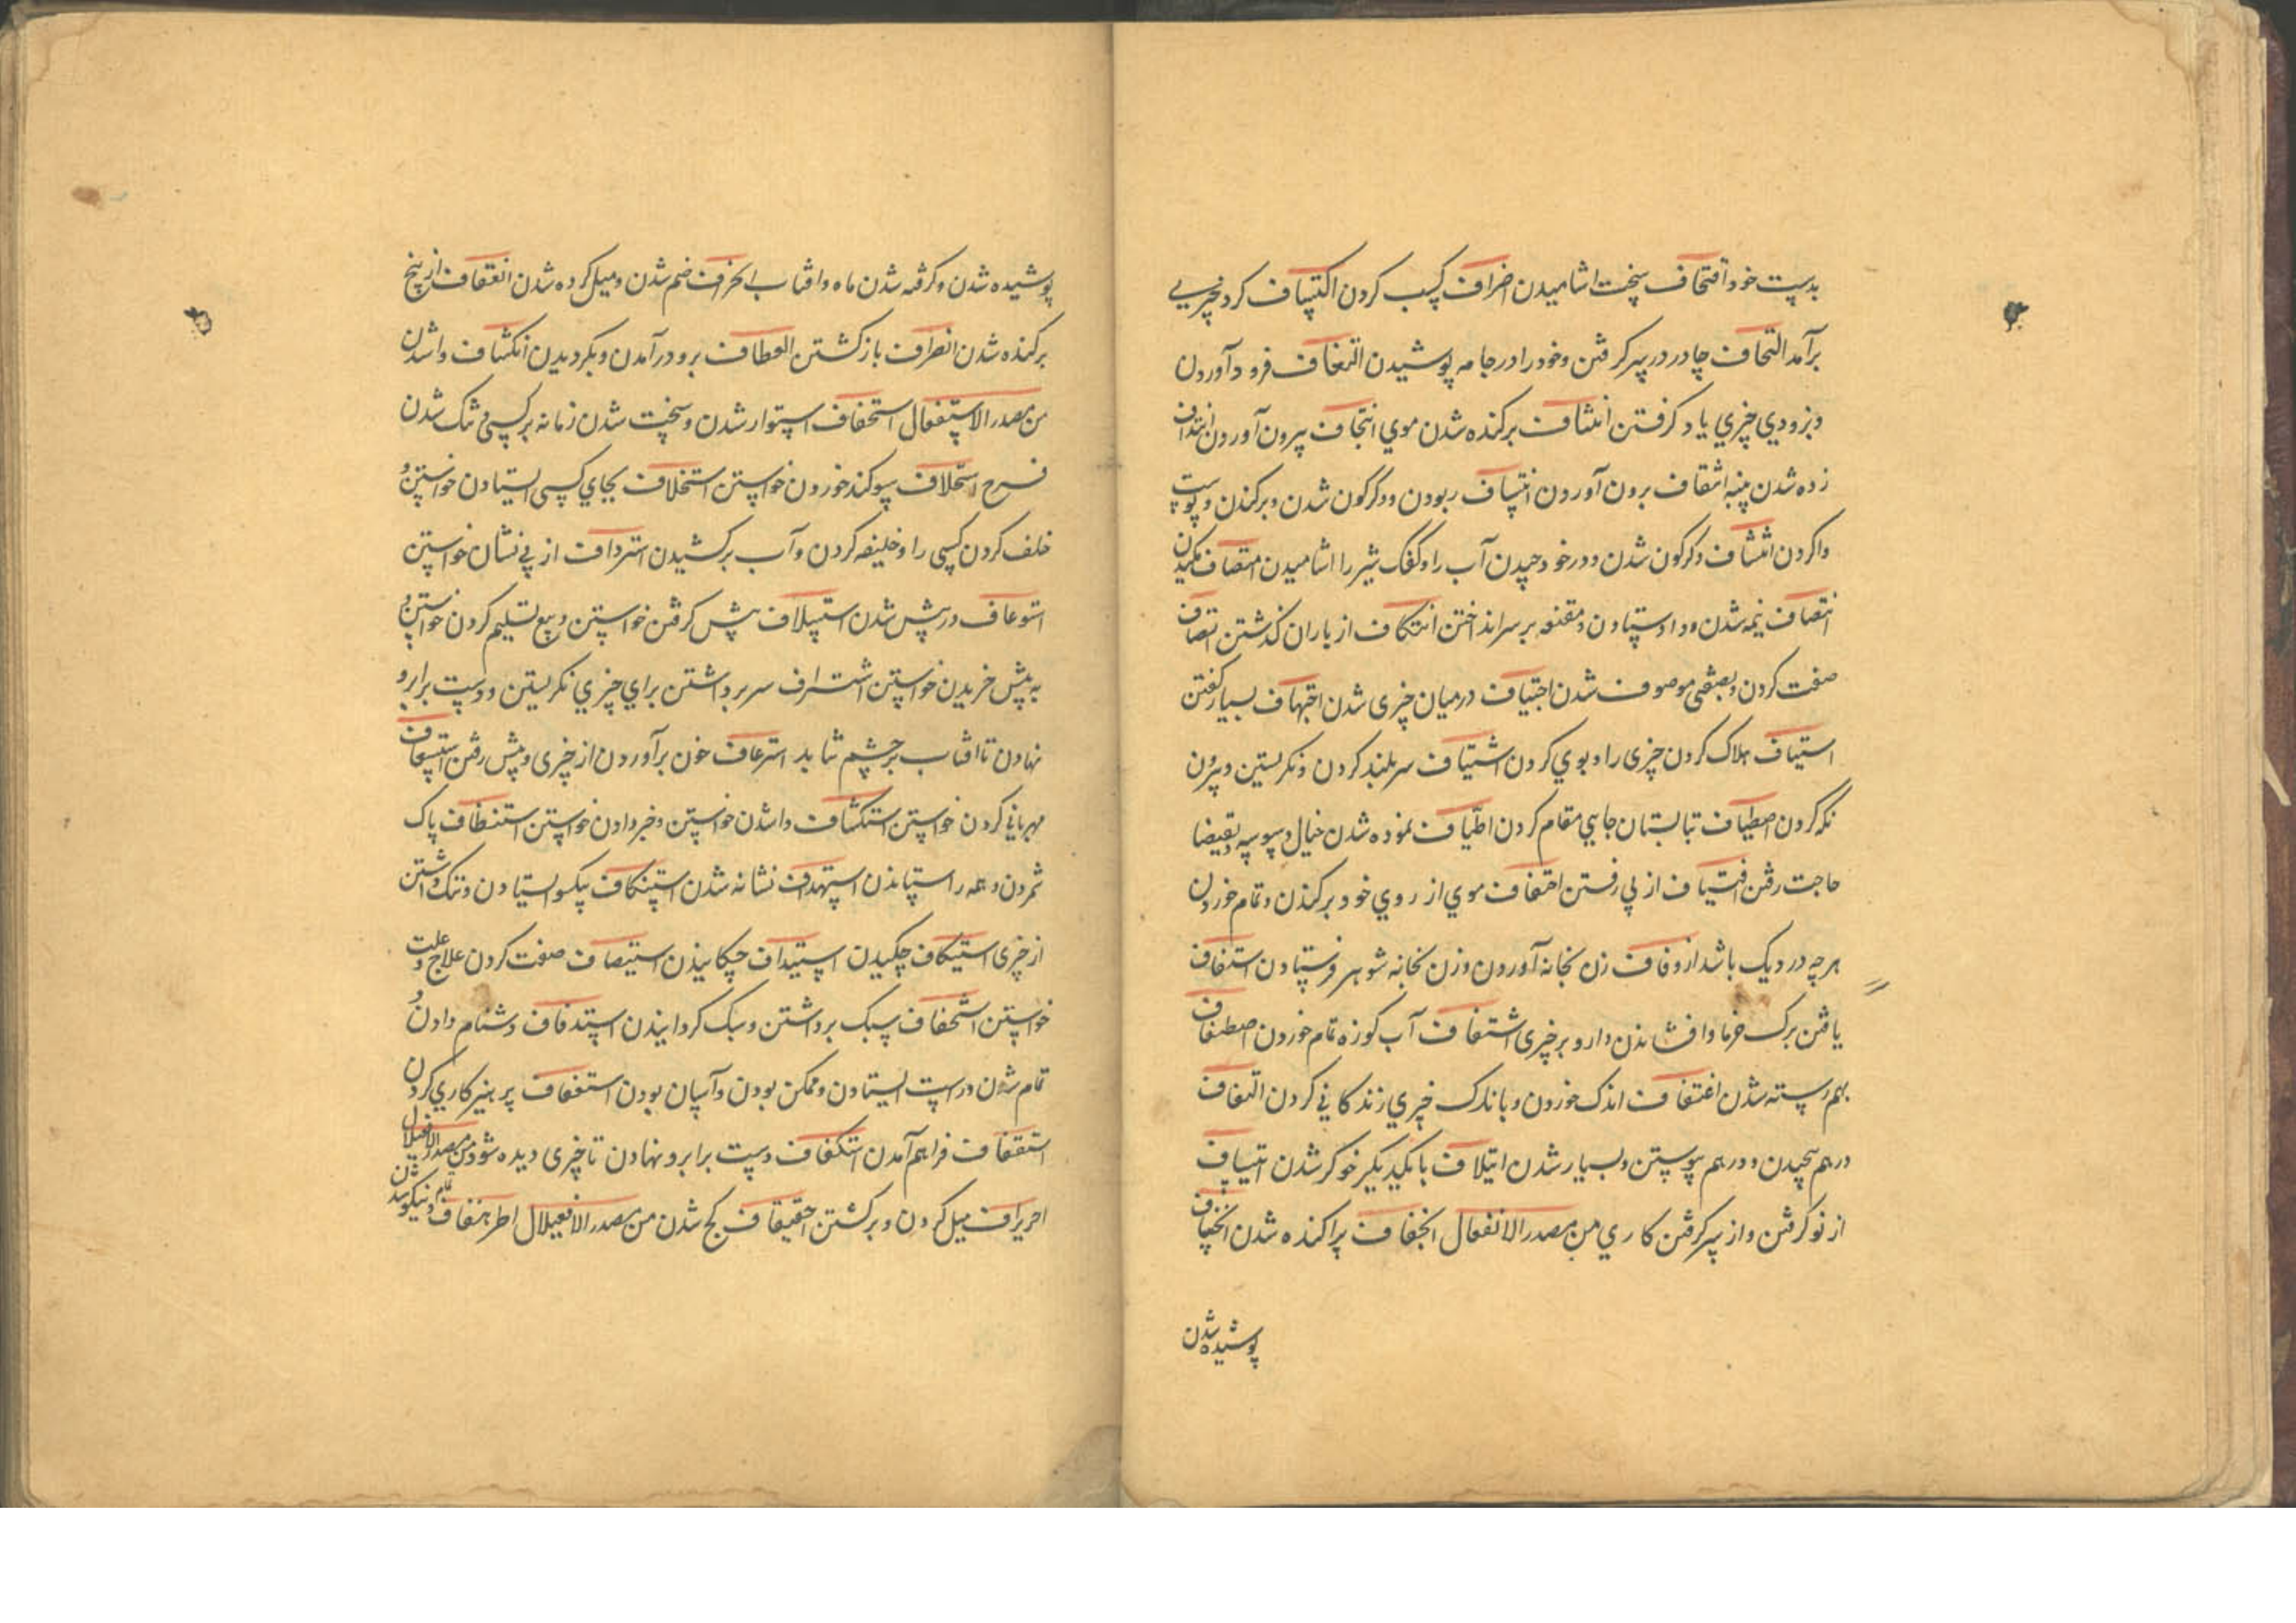 بدست خود اقتحاف سخت اشامیدن اضراف کسب کردن اکتساف کرد چیزیی
برآمد التحاف چادر در سر کرفتن وخود را در جامه پوشیدن فرود آوردن
وبزودي چیزي یاد کرفتن انتتاف برکنده شدن موي انتجاف بیرون آوردن انتداف
زده شدن پنبه انتقاف برون آوردن انتساف ربودن ودکرکون شدن وبرکندن وپوست
واکردن انتشاف دکرکون شدن ودر خود چیدن آب را وکفک شیر را اشامیدن امتصاف مکیدن
انتصاف نیمه شدن وداد ستادن ومقنعه بر سر انداختن انتکاف از باران کذشتن اتصاف
صفت کردن وبصفتی موصوف شدن اجتیاف درمیان چیزی شدن اجتهاف بسیار کفتن
استیاف هلاک کردن چیزی را وبوي کردن اشتیاف سر بلند کردن ونکریستن وبیرون
نکه کردن اصطیاف تابستان جایي مقام کردن اطیاف نموده شدن خیال وسوسه وبقضا
حاجت رفتن اقتیاف از پي رفتن احتفاف موي از روي خود برکندن وتمام خوردن
هرچه در دیک باشد ازدفاف زن بخانه آوردن وزن بخانه شوهر فرستادن استفاف
یافتن برک خرما وافشاندن دارو بر چیزی اشتفاف آب کوزه تمام خوردن اصطفاف
بهم رسته شدن اغتفاف اندک خوردن وباندک چیزي زندکاني کردن التفاف
درهم پیچیدن ودرهم پیوستن وبسیار شدن ایتلاف با یکدیکر خوکر شدن ایتناف
از نو کرفتن واز سر کرفتن کاري من مصدر الانفعال انجفاف پراکنده شدن انخساف
پوشیده شدن
پوشیده شدن وکرفته شدن ماه وافتاب انحراف خم شدن ومیل کرده شدن انقعاف از بیخ
برکنده شدن انصراف باز کشتن انعطاف برو درآمدن وبکردیدن انکشاف واشدن
من مصدر الاستفعال استحفاف استوار شدن وسخت شدن زمانه برکسی وتنک شدن
فرج استحلاف سوکند خوردن خواستن استخلاف بجاي کسی ایستادن خواستن و
خلف کردن کسی را وخلیفه کردن وآب برکشیدن استرداف از پي نشان خواستن
استوعاف در پیش شدن استسلاف پیش کرفتن خواستن وبیع تسلیم کردن خواستن و
به پیش خریدن خواستن استشراف سر برداشتن براي چیزي نکریستن ودست برابرو
نهادن تا افتاب بر چشم نتابد استرعاف خون برآوردن از چیزی وپیش رفتن استسعاف
مهرباني کردن خواستن استکشاف واشدن خواستن وخبر دادن خواستن استنظاف پاک
شمردن وهمه را ستاندن استهداف نشانه شدن استنکاف یکسو ایستادن وننک داشتن
از چیزی استیکاف چکیدن استیداف چکانیدن استیصاف صفت کردن علاج وعلت
خواستن استخفاف سبک برداشتن وسبک کردانیدن استدفاف دشنام دادن و
تمام شدن وراست ایستادن وممکن بودن وآسان بودن استعفاف پرهیزکاري کردن
استقفاف فراهم آمدن استکفاف دست برابرو نهادن تا چیزی دیده شود من مصدر الافعیلال
احریراف میل کردن وبرکشتن احقیقاف کج شدن من مصدر الافعیلال اطرهفاف تمام ونیکو شدن